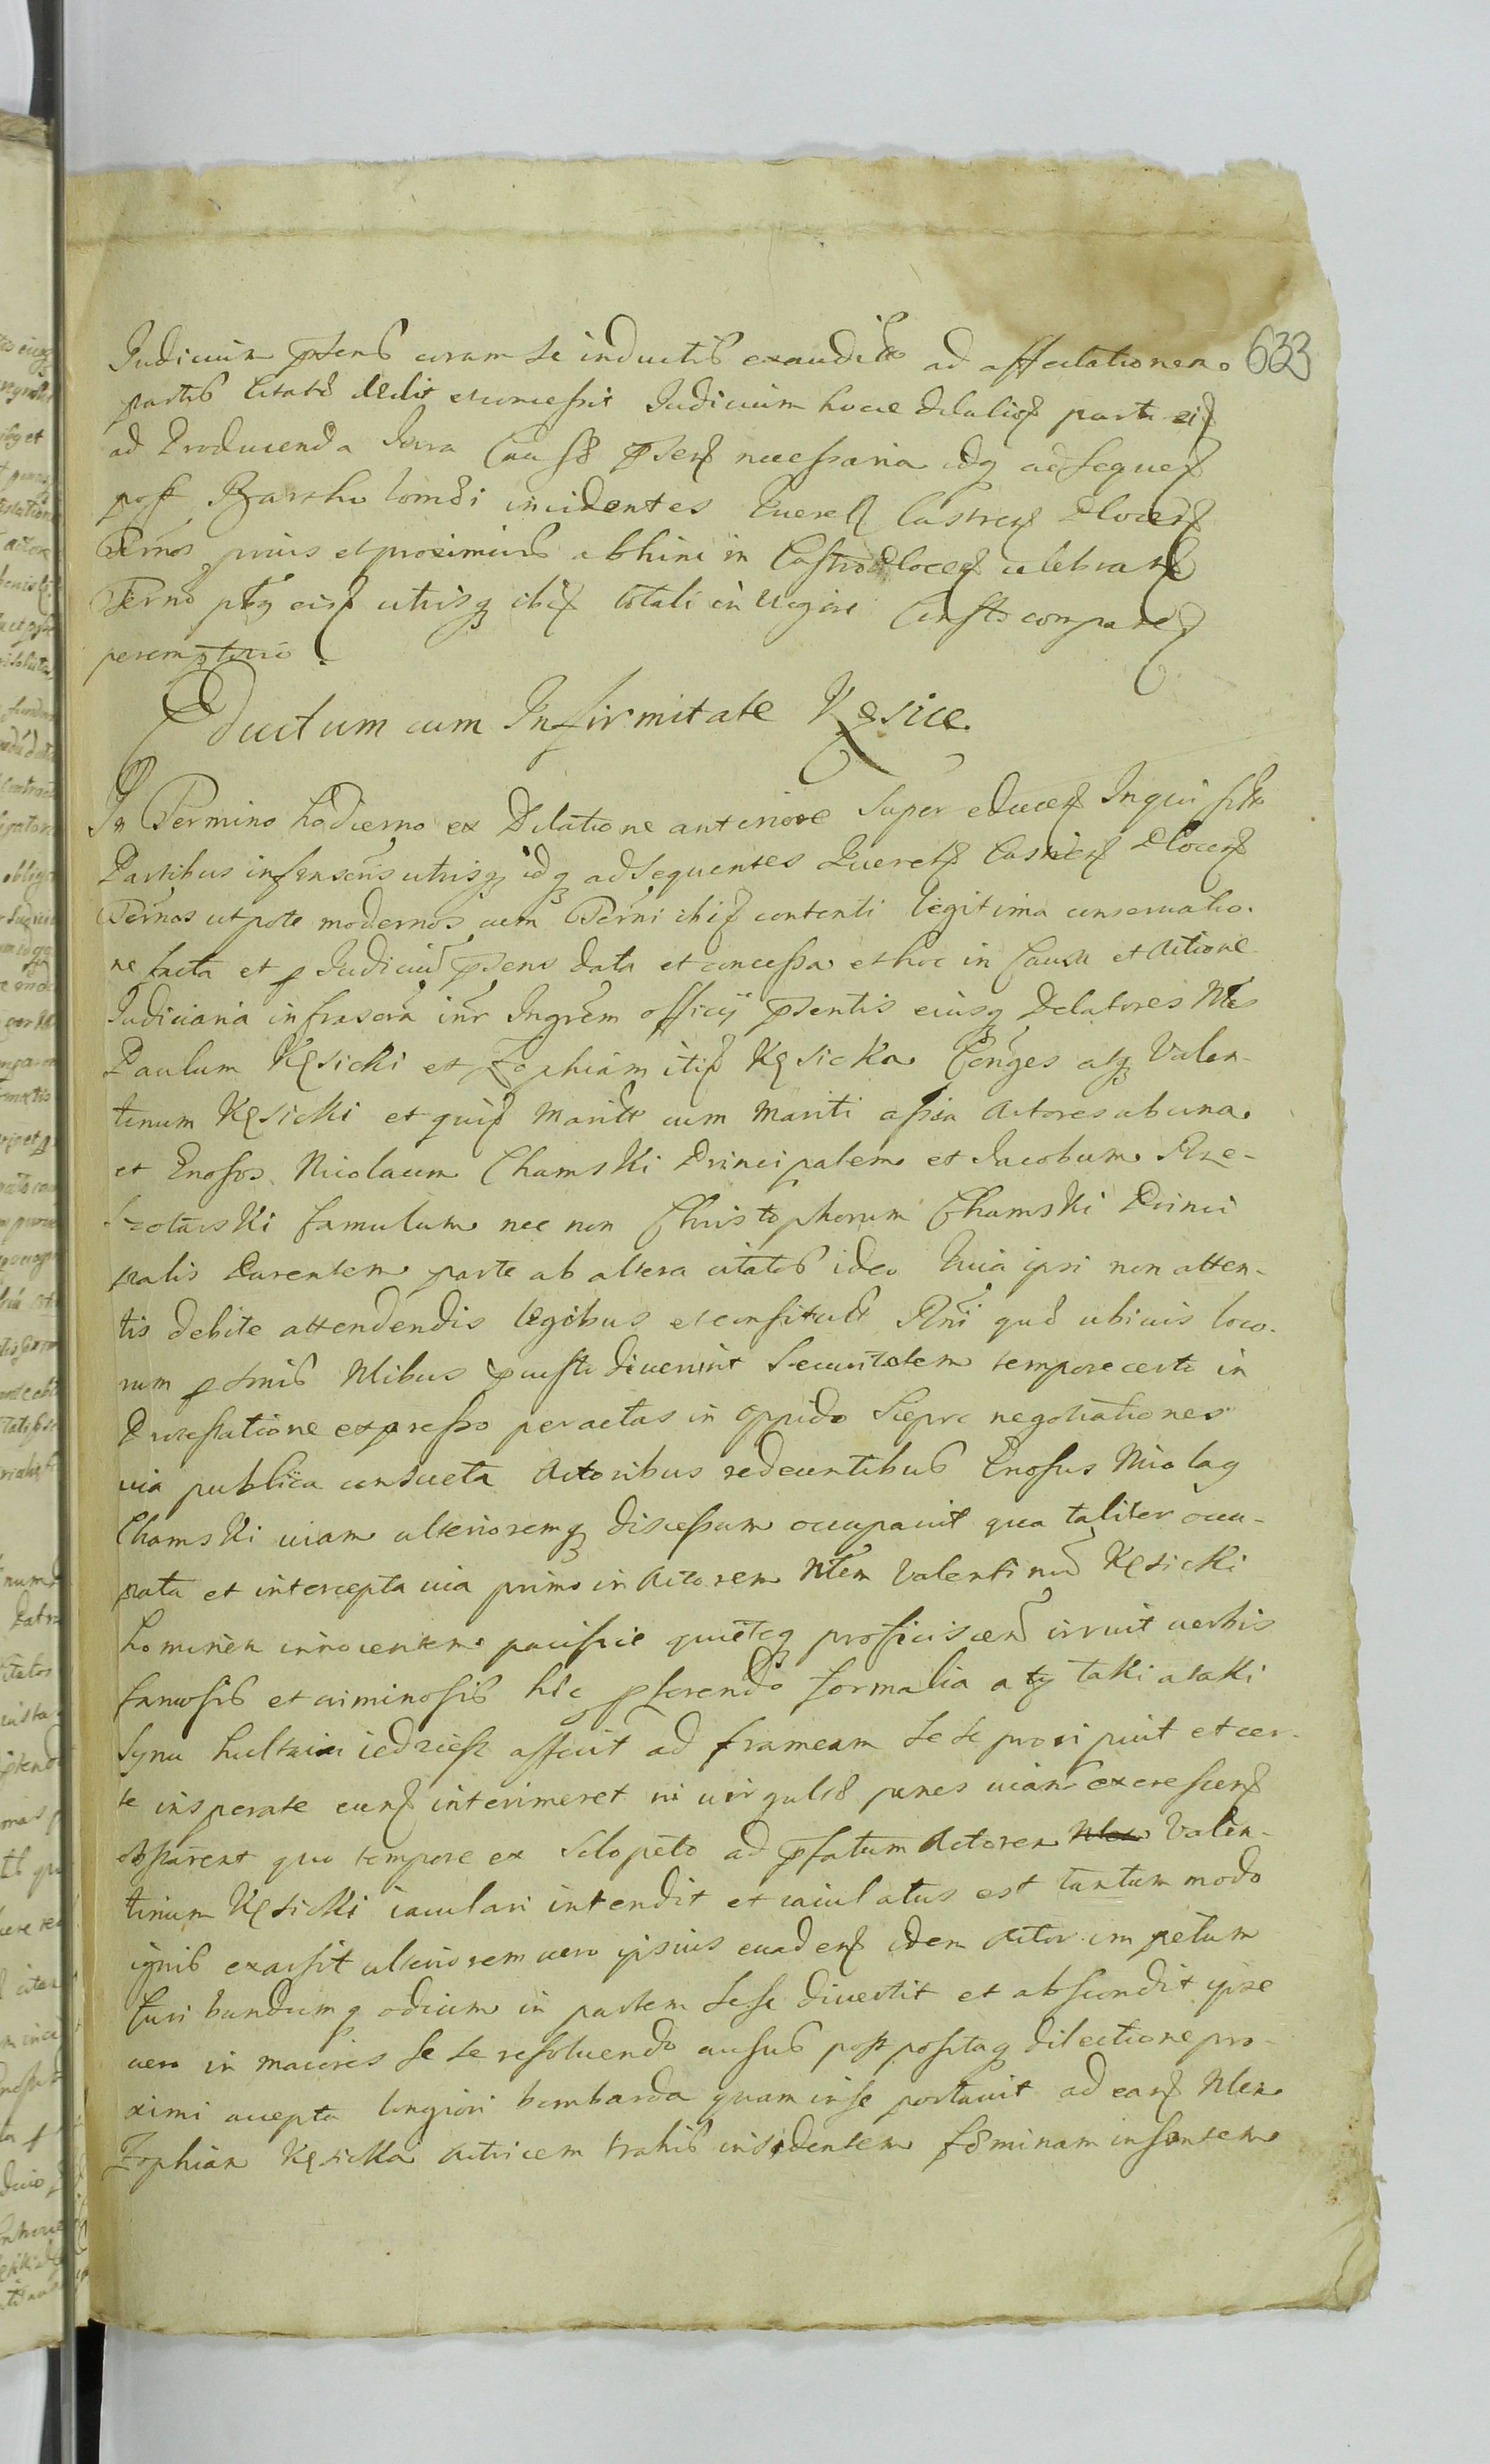 633
Judicium pñs coram se inductis exaudit ad affectationem
partis Citatæ dedit et concessit Judicium hocce dilatio parti eid
ad Producenda Jura Causæ pñs necessaria idq ad seques
post Bartholomæi incidentes Querel Castren Plocen
Termos prius et proximius abhinc in Castro Plocen celebrand
Termo ptibq eisd utrisq ibid totali in vigore Causæ compared
peremptorio
Eductum cum Infirmitate Kęsice
In Termino hodierno ex Dilatione anteriore super educen Inquisit
Partibus infrascris utrisq idq ad sequentes Querel Castren Plocen
Termos utpote modernos cum Termi ibid contenti legitima conservatio-
ne facta et p Judiciũ psens data et concessa et hoc in Causa et Actione
Judiciaria infrascra inr Ingrem officij psentis eiusq Delatores Nles
Paulum Kęsicki et Zophiam itid Kęsicka Conges atq Valen-
tinum Kęsicki et quid Marit cum Mariti assia Actores ab una
et Gnosos Nicolaum Chamski Principalem et Jacobum Rze-
szotarski famulum nec non Christophorum Chamski Princi
palis Parentem parte ab altera citatos ideo Quia ipsi non atten-
tis debite attendendis legibus et consitut Rni quæ ubivis loco-
rum p omnib Nlibus pcustodiverunt Securitatem tempore certo in
Protestatione expresso peractas in oppido Sieprc negotiationes
via publica consueta Actoribus redeuntibus Gnosus Nicolaq
Chamski viam ulterioremq discessum occupavit qua taliter occu-
pata et intercepta via primo in Actorem Nlem Valentinũ Kęsicki
hominem innocentem pacifice quieteq proficiscen irruit verbis
famosis et criminosis hic pferendo formalia a ty taki a taki
synu hultaiu iedziesz assait ad frameam sese proripuit et cer-
te insperate eund interimeret ni virgulæ penes viam excrescen
obstarent quo tempore ex Sclopeto ad pfatum Actorem Valen-
tinum Kęsicki iaculari intendit et iaculatus est tantum modo
ignis exarsit ulteriorem vero ipsius evadens idem Actor impetum
furibundumq odium in partem sese divertit et abscondit ipse
vero in maiores sese resolvendo ausus post positaq dilectione pro-
ximi accepta longiori bombarda quam in se portavit ad eand Nlem
Zophiam Kęsicka Actricem trahis insidentem fæminam insontem